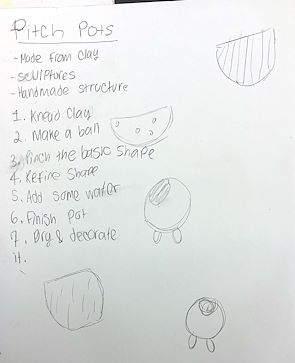 Pitch Pots
-Made from clay
-sculptures
-Handmade structure
1. Knead Clay
2. Make a ball
3. Pinch the basic shape
4. Refine shape
5. Add some water
6. Finish pot
7. Dry & decorate